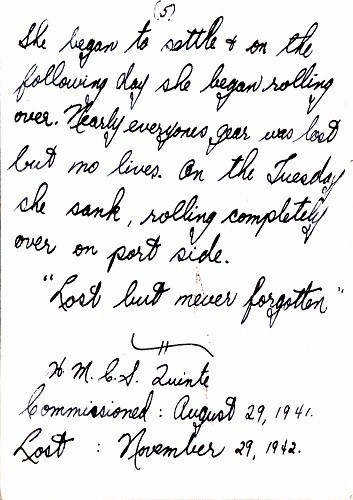 (5)
She began to settle & on the
following day she began rolling
over. Nearly everyones gear was lost
but no lives. On the Tuesday
she sank, rolling completely
over on port side.
"Lost but never forgotten"
H.M.C.S. Quinte
Commissioned: August 29, 1941.
Lost : November 29, 1942.